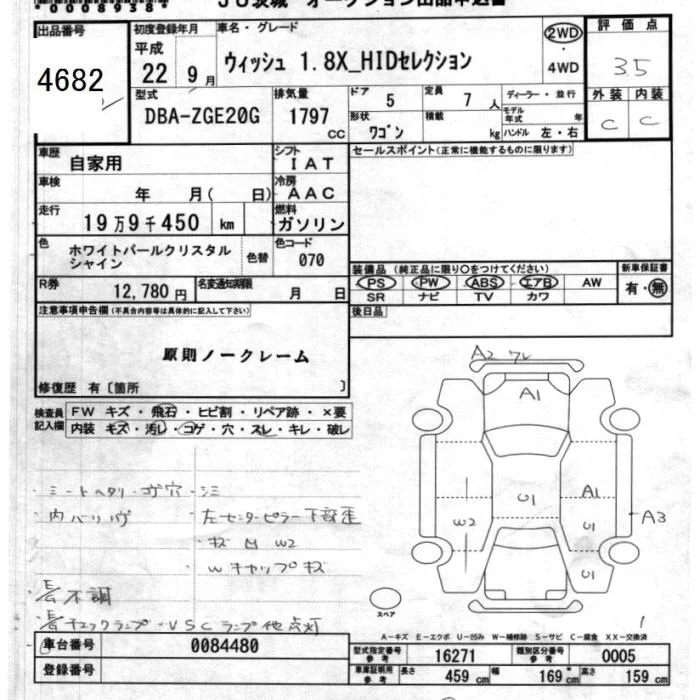 00089381
JU茨城 オークション出品申込書
出品番号
4682
初度登録年月
平成
22 9月
車名・グレード
ウィッシュ 1.8X_HIDセレクション
2WD
・
4WD
評価点
3.5
外装 内装
C C
型式
DBA-ZGE20G
排気量
1797
CC
ドア
5
定員
7 人
形状
ワゴン
積載
kg
ディーラー・並行
モデル
年式 年
ハンドル 左・右
車歴
自家用
シフト
IAT
車検
年 月( 日)
冷房
AAC
走行
19万9千450 km
燃料
ガソリン
色
ホワイトパールクリスタル
シャイン
色替
色コード
070
R券
12,780 円
名変通知期限
月 日
セールスポイント(正常に機能するものに限ります)
装備品 (純正品に限り○をつけてください)
PS PW ABS エアB AW
SR ナビ TV カワ
新車保証書
有・無
後日品
注意事項申告欄(不具合内容等は具体的に記入して下さい)
原則ノークレーム
修復歴 有〔箇所 〕
検査員
記入欄
FW キズ・飛石・ヒビ割・リペア跡・×要
内装 キズ・汚レ・コゲ・穴・スレ・キレ・破レ
・シートヘタリ・コゲ穴・シミ
・内ハリハガ
左センターピラー下部歪
キズ凹W2
Wキャップキズ
長不調
チェックランプ・VSCランプ他点灯
A2 ワレ
A1
U1
A1
U1
A3
W2
U1
スペア
1
A-キズ E-エクボ U-凹み W-補修跡 S-サビ C-腐食 XX-交換済
車台番号
0084480
登録番号
型式指定番号
参考
16271
類別区分番号
参考
0005
車庫証明用
参考
長さ
459 cm
幅
169 cm
高さ
159 cm